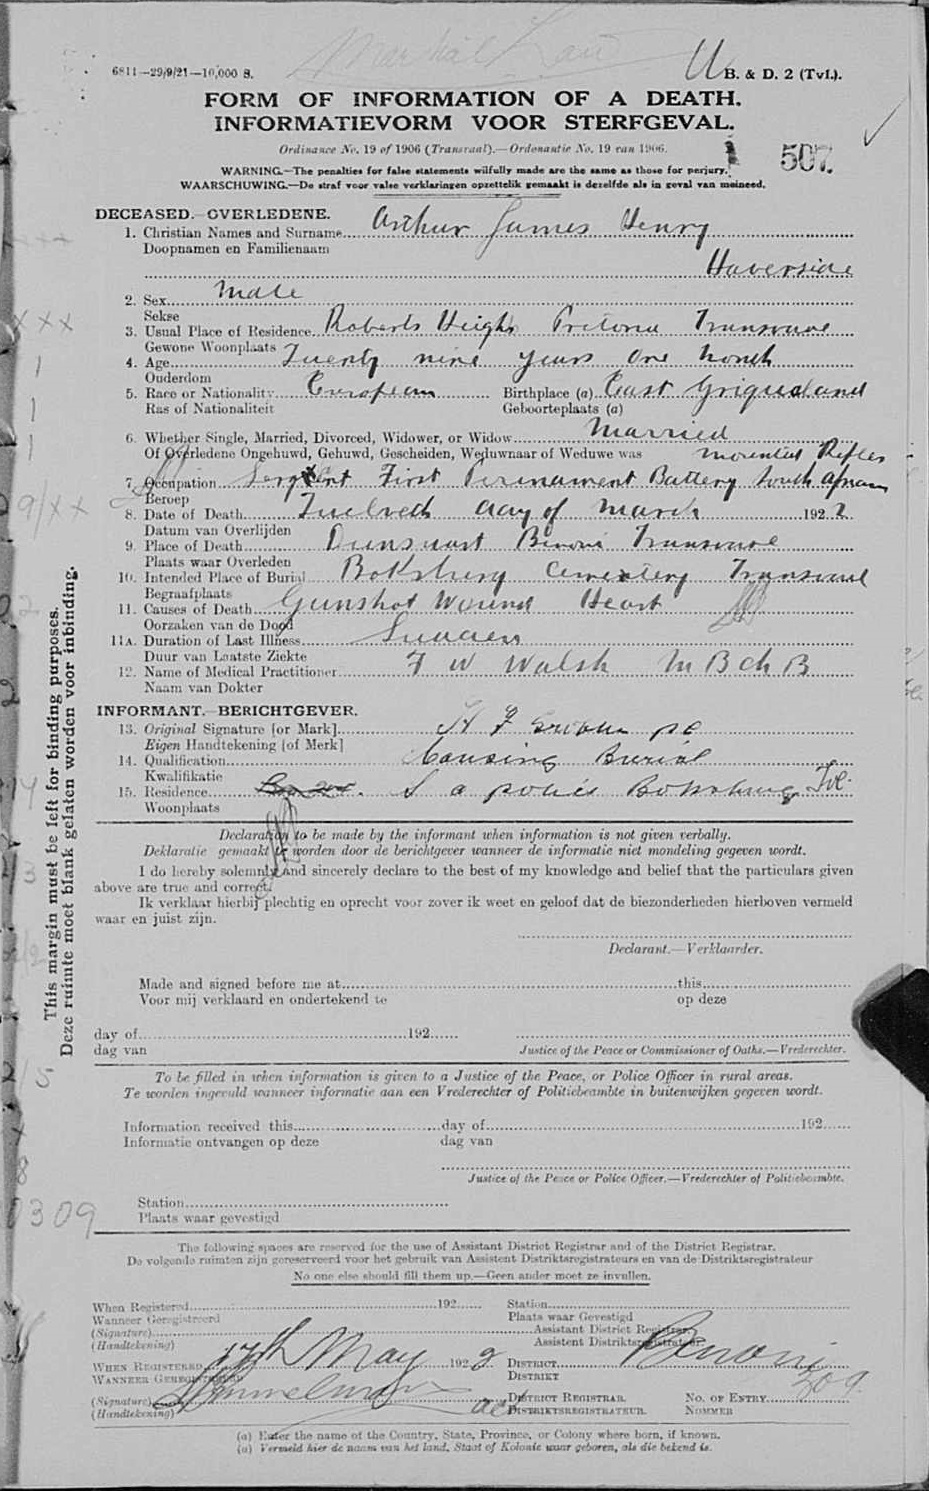 Martial Law
6811—29/9/21—10,000 S.
U B. & D. 2 (Tvl.).
FORM OF INFORMATION OF A DEATH.
INFORMATIEVORM VOOR STERFGEVAL.
Ordinance No. 19 of 1906 (Transvaal).—Ordonantie No. 19 van 1906.
507.
WARNING.—The penalties for false statements wilfully made are the same as those for perjury.
WAARSCHUWING.—De straf voor valse verklaringen opzettelik gemaakt is dezelfde als in geval van meineed.
DECEASED.—OVERLEDENE.
1. Christian Names and Surname Arthur James Henry
Doopnamen en Familienaam
Haverside
2. Sex Male
Sekse
3. Usual Place of Residence Roberts Heights Pretoria Transvaal
Gewone Woonplaats
4. Age Twenty nine years One Month
Ouderdom
5. Race or Nationality European Birthplace (a) East Griqualand
Ras of Nationaliteit Geboorteplaats (a)
6. Whether Single, Married, Divorced, Widower, or Widow Married
Of Overledene Ongehuwd, Gehuwd, Gescheiden, Weduwnaar of Weduwe was
Mounted Rifles
7. Occupation Sergeant First Permament Battery South African
Beroep
8. Date of Death Twelveth day of March 1922
Datum van Overlijden
9. Place of Death Dunswart Benoni Transvaal
Plaats waar Overleden
10. Intended Place of Burial Boksburg Cemetery Transvaal
Begraafplaats
11. Causes of Death Gunshot Wound Heart
Oorzaken van de Dood
11A. Duration of Last Illness Sudden
Duur van Laatste Ziekte
12. Name of Medical Practitioner F W Walsh M B Ch B
Naam van Dokter
INFORMANT.—BERICHTGEVER.
13. Original Signature [or Mark] pc
Eigen Handtekening [of Merk]
14. Qualification Causing Burial
Kwalifikatie
15. Residence S a police Boksburg Tvl
Woonplaats
Declaration to be made by the informant when information is not given verbally.
Deklaratie gemaakt te worden door de berichtgever wanneer de informatie niet mondeling gegeven wordt.
I do hereby solemnly and sincerely declare to the best of my knowledge and belief that the particulars given
above are true and correct.
Ik verklaar hierbij plechtig en oprecht voor zover ik weet en geloof dat de biezonderheden hierboven vermeld
waar en juist zijn.
Declarant.—Verklaarder.
Made and signed before me at this
Voor mij verklaard en ondertekend te op deze
day of 192
dag van Justice of the Peace or Commissioner of Oaths.—Vrederechter.
To be filled in when information is given to a Justice of the Peace, or Police Officer in rural areas.
Te worden ingevuld wanneer informatie aan een Vrederechter of Politiebeambte in buitenwijken gegeven wordt.
Information received this day of 192
Informatie ontvangen op deze dag van
Justice of the Peace or Police Officer.—Vrederechter of Politiebeambte.
Station
Plaats waar gevestigd
The following spaces are reserved for the use of Assistant District Registrar and of the District Registrar.
De volgende ruimten zijn gereserveerd voor het gebruik van Assistent Distriktsregistrateurs en van de Distriktsregistrateur
No one else should fill them up.—Geen ander moet ze invullen.
When Registered 192 Station
Wanneer Geregistreerd Plaats waar Gevestigd
(Signature) Assistant District Registrar
(Handtekening) Assistent Distriktsregistrateur
WHEN REGISTERED 17th May 1922 DISTRICT Benoni
WANNEER GEREGISTREERD DISTRIKT
(Signature) DISTRICT REGISTRAR. NO. OF ENTRY 309
(Handtekening) DISTRIKTSREGISTRATEUR. NOMMER
(a) Enter the name of the Country, State, Province, or Colony where born, if known.
(a) Vermeld hier de naam van het land, Staat of Kolonie waar geboren, als die bekend is.
This margin must be left for binding purposes.
Deze ruimte moet blank gelaten worden voor inbinding.